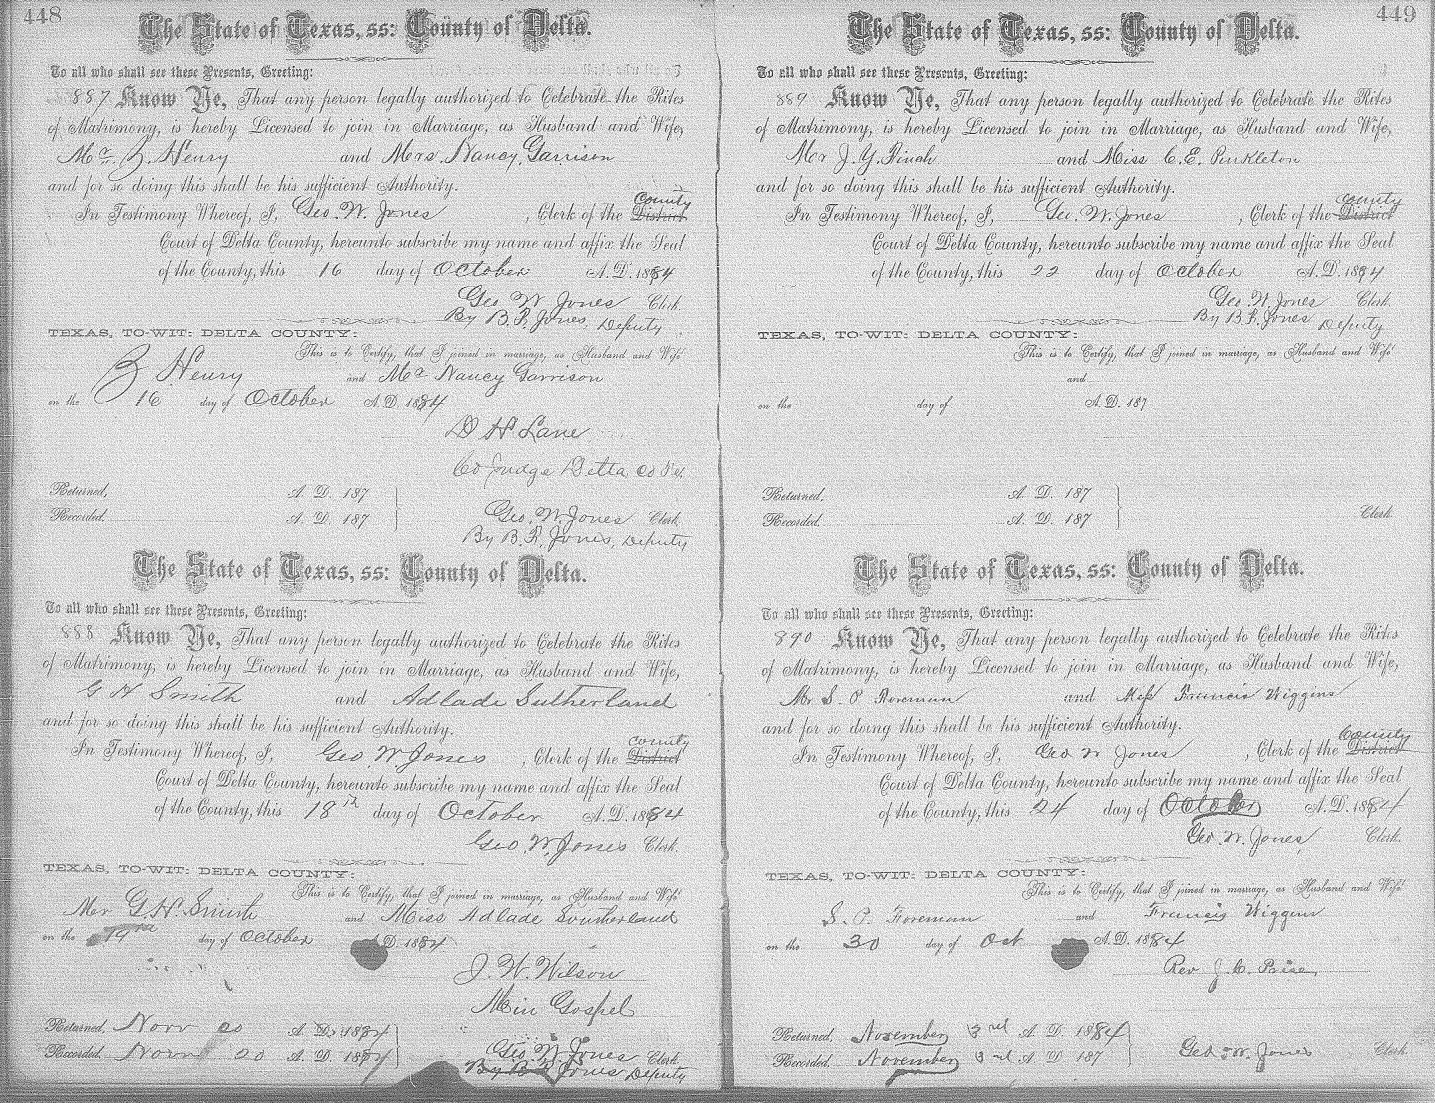 448
The State of Texas, ss: County of Delta.
To all who shall see these Presents, Greeting:
887 Know Ye, That any person legally authorized to Celebrate the Rites
of Matrimony, is hereby Licensed to join in Marriage, as Husband and Wife,
Mr. Z. Henry and Mrs. Nancy Garrison
and for so doing this shall be his sufficient Authority.
In Testimony Whereof, I, Geo. W. Jones, Clerk of the District County
Court of Delta County, hereunto subscribe my name and affix the Seal
of the County, this 16 day of October A. D. 1884
Geo W Jones Clerk.
By B. F. Jones, Deputy
TEXAS, TO-WIT: DELTA COUNTY:
This is to Certify, that I joined in marriage, as Husband and Wife
Z Henry and Mrs Nancy Garrison
on the 16 day of October A. D. 1884
D H Lane
Co Judge Delta Co
Returned, A. D. 187
Recorded. A. D. 187
Geo. W. Jones Clerk.
By B. F. Jones, Deputy
The State of Texas, ss: County of Delta.
To all who shall see these Presents, Greeting:
888 Know Ye, That any person legally authorized to Celebrate the Rites
of Matrimony, is hereby Licensed to join in Marriage, as Husband and Wife,
G H Smith and Adlade Sutherland
and for so doing this shall be his sufficient Authority.
In Testimony Whereof, I, Geo W Jones, Clerk of the District County
Court of Delta County, hereunto subscribe my name and affix the Seal
of the County, this 18th day of October A. D. 1884
Geo. W. Jones Clerk.
TEXAS, TO-WIT: DELTA COUNTY:
This is to Certify, that I joined in marriage, as Husband and Wife
Mr G. H. Smith and Miss Adlade Southerland
on the 19th day of October A. D. 1884
J. W. Wilson
Min Gospel
Returned, Nov 20 A. D. 1884
Recorded. Nov 20 A. D. 1884
Geo. W. Jones Clerk.
By B F Jones Deputy
449
The State of Texas, ss: County of Delta.
To all who shall see these Presents, Greeting:
889 Know Ye, That any person legally authorized to Celebrate the Rites
of Matrimony, is hereby Licensed to join in Marriage, as Husband and Wife,
Mr J. Y. Finch and Miss C. E. Pinkleton
and for so doing this shall be his sufficient Authority.
In Testimony Whereof, I, Geo. W. Jones, Clerk of the District County
Court of Delta County, hereunto subscribe my name and affix the Seal
of the County, this 22 day of October A. D. 1884
Geo. W. Jones Clerk.
By B F. Jones Deputy
TEXAS, TO-WIT: DELTA COUNTY:
This is to Certify, that I joined in marriage, as Husband and Wife
and
on the day of A. D. 187
Returned, A. D. 187
Recorded. A. D. 187
Clerk
The State of Texas, ss: County of Delta.
To all who shall see these Presents, Greeting:
890 Know Ye, That any person legally authorized to Celebrate the Rites
of Matrimony, is hereby Licensed to join in Marriage, as Husband and Wife,
Mr S. P. Foreman and Miss Francis Wiggins
and for so doing this shall be his sufficient Authority.
In Testimony Whereof, I, Geo W Jones, Clerk of the District County
Court of Delta County, hereunto subscribe my name and affix the Seal
of the County, this 24 day of October A. D. 1884
Geo. W. Jones, Clerk.
TEXAS, TO-WIT: DELTA COUNTY:
This is to Certify, that I joined in marriage, as Husband and Wife
S. P. Foreman and Francis Wiggins
on the 30 day of Oct A. D. 1884
Rev J. C.
Returned, November 3rd A. D. 1884
Recorded. November 3rd A. D. 187
Geo. W. Jones Clerk